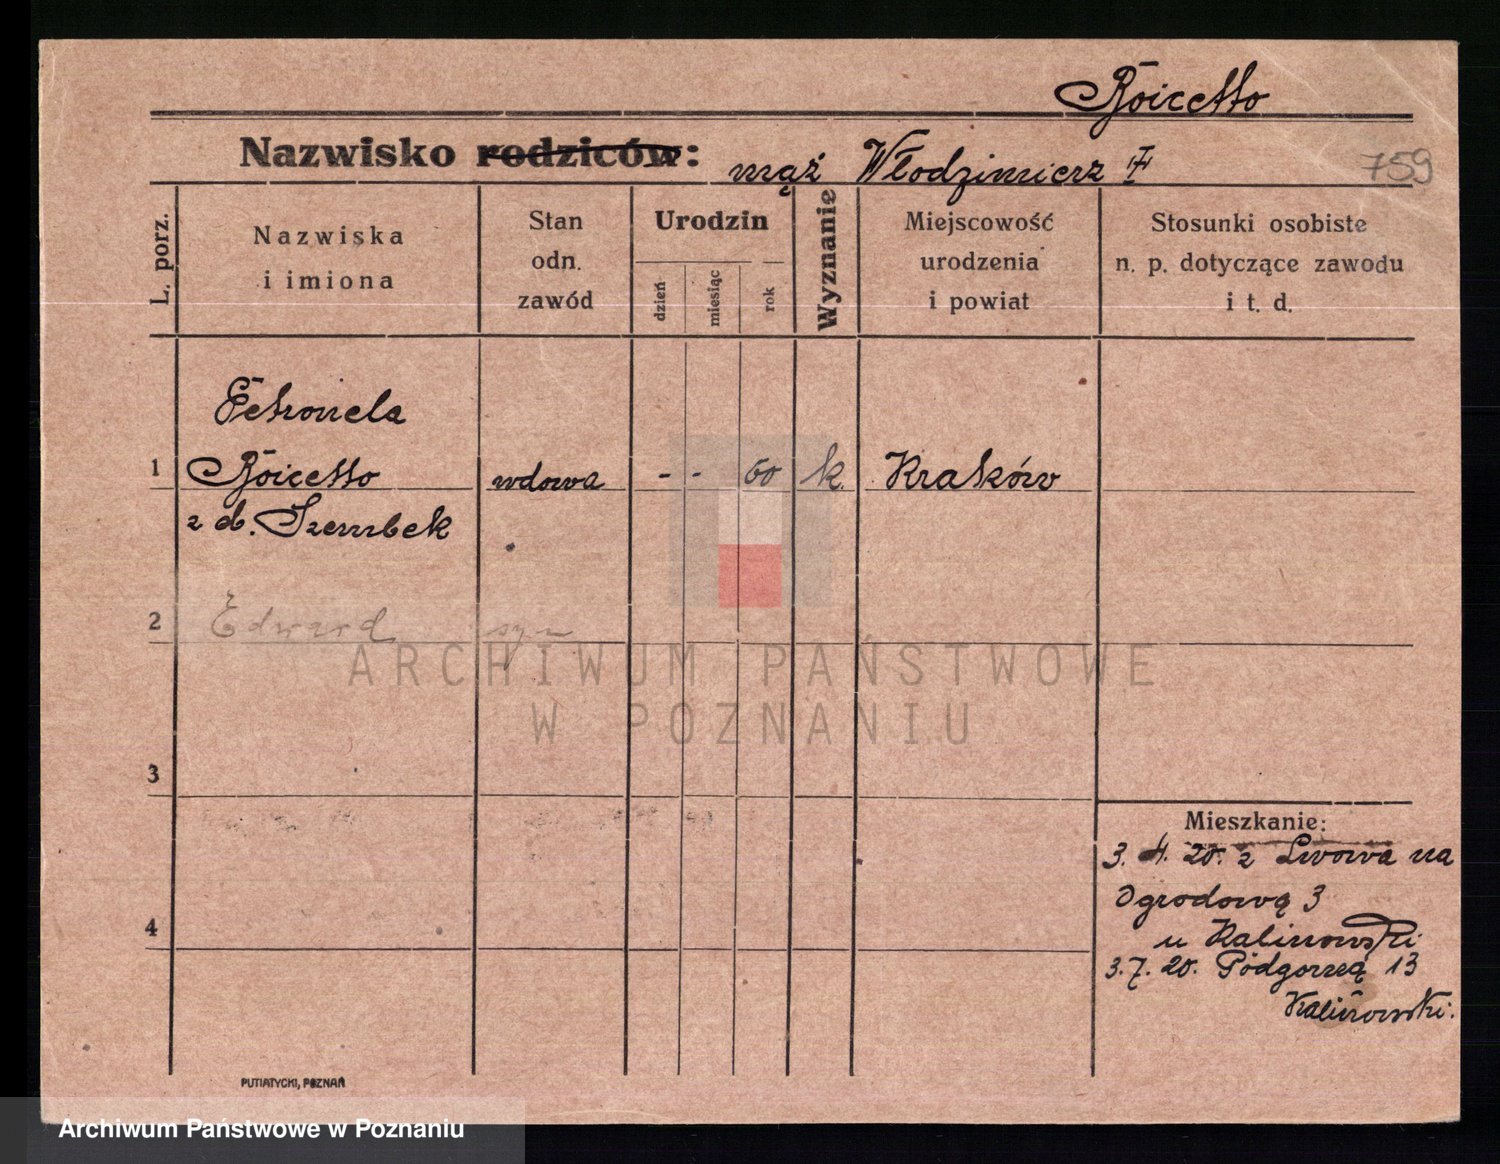 Boicetto
Nazwisko rodziców: mąż Włodzimierz †
759
L. porz.
Nazwiska
i imiona
Stan
odn.
zawód
Urodzin
dzień
miesiąc
rok
Wyznanie
Miejscowość
urodzenia
i powiat
Stosunki osobiste
n. p. dotyczące zawodu
i t. d.
Petronela
1 Boicetto wdowa - - 60 k. Kraków
z d. Szembek
2 Edward syn
3
4
Mieszkanie:
3. 4. 20. z Lwowa na
Ogrodową 3
u Kalinowski
3. 7. 20. Podgórną 13
Kalinowski.
PUTIATYCKI, POZNAŃ
ARCHIWUM PAŃSTWOWE
W POZNANIU
Archiwum Państwowe w Poznaniu